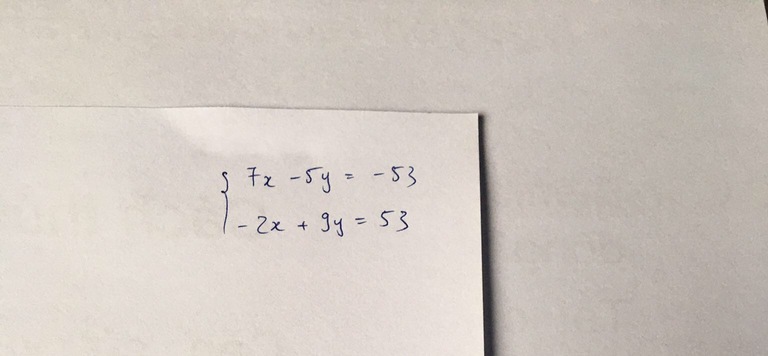 7x - 5y = -53
-2x + 9y = 53